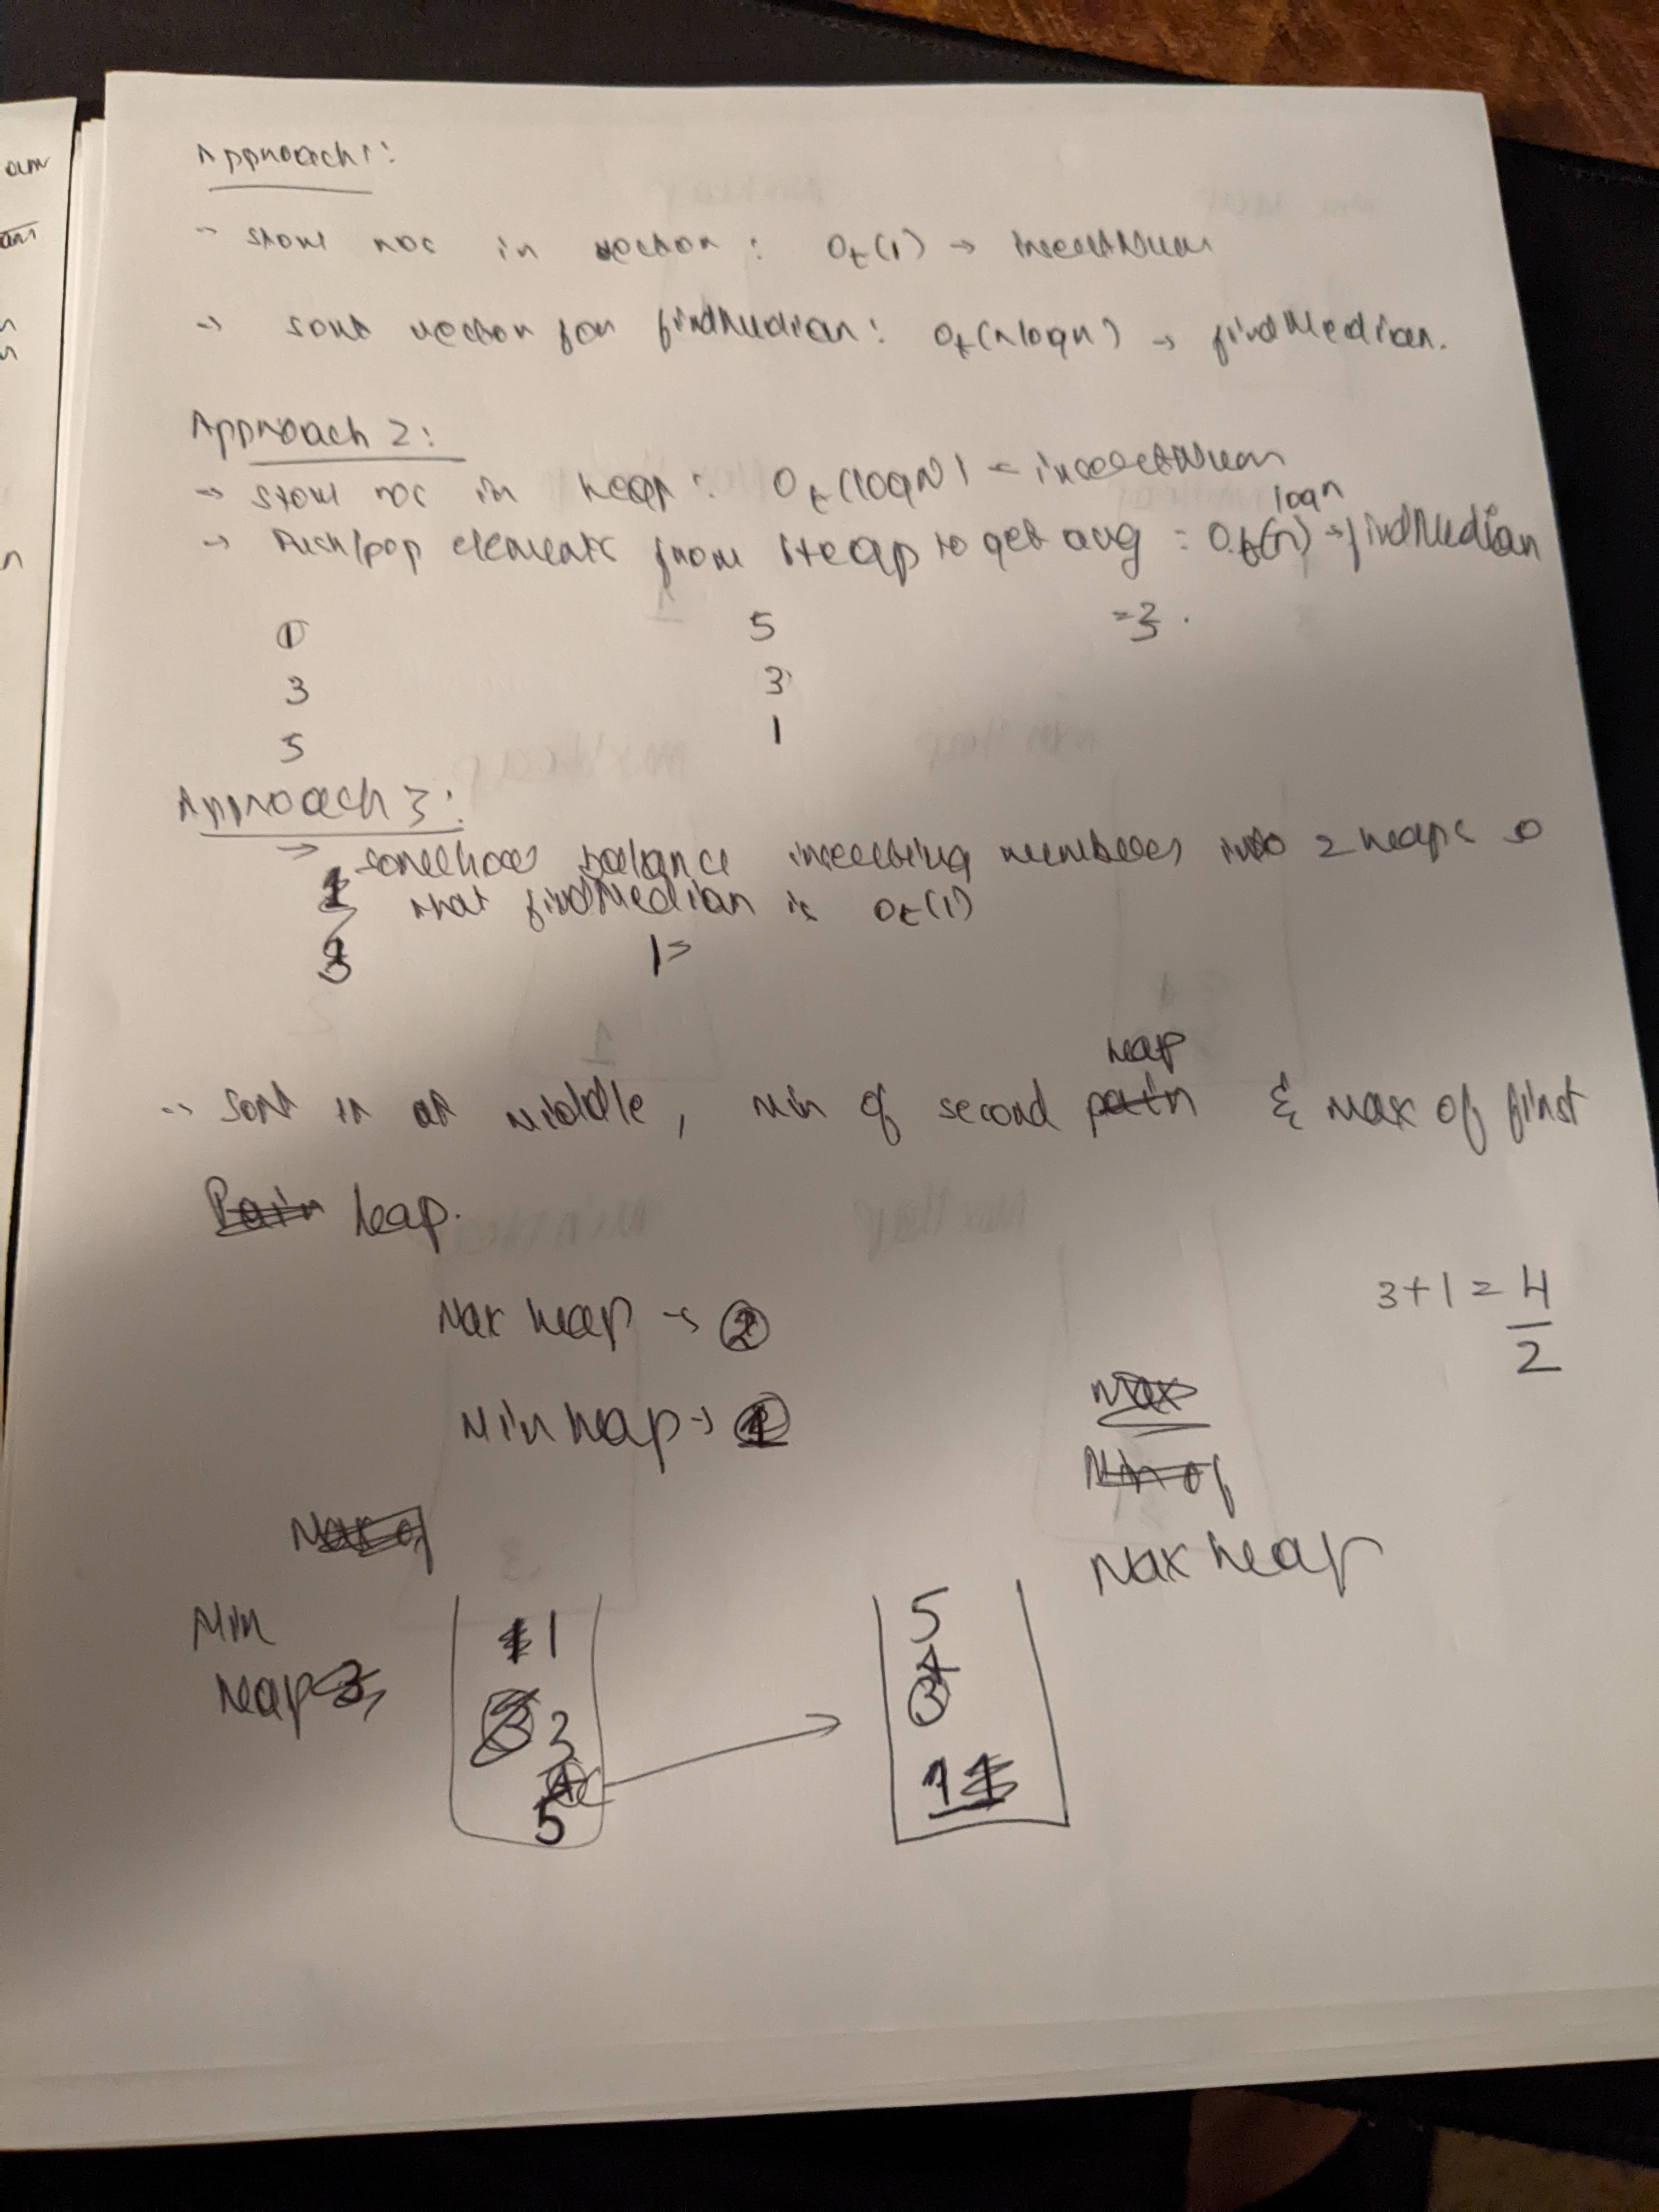 Approach 1:
→ store nos in vector : Ot(1) → insertNum
→ sort vector for findMedian : Ot(nlogn) → findMedian.
Approach 2:
→ store nos in heap : Ot(logN) → insertNum
logn
→ Push/pop elements from Heap to get avg = Ot(n) → findMedian
1 5 = 3.
3 3
5 1
Approach 3:
→ somehow balance inserting numbers into 2 heaps so
that findMedian is Ot(1)
3 1
heap
→ Sort in at middle, min of second pair & max of first
Pair heap.
3+1 = 4
2
Max heap → 2
Min heap → 1
Max
Min of
Max heap
Min
heap
1 5
3 3
5 1
am